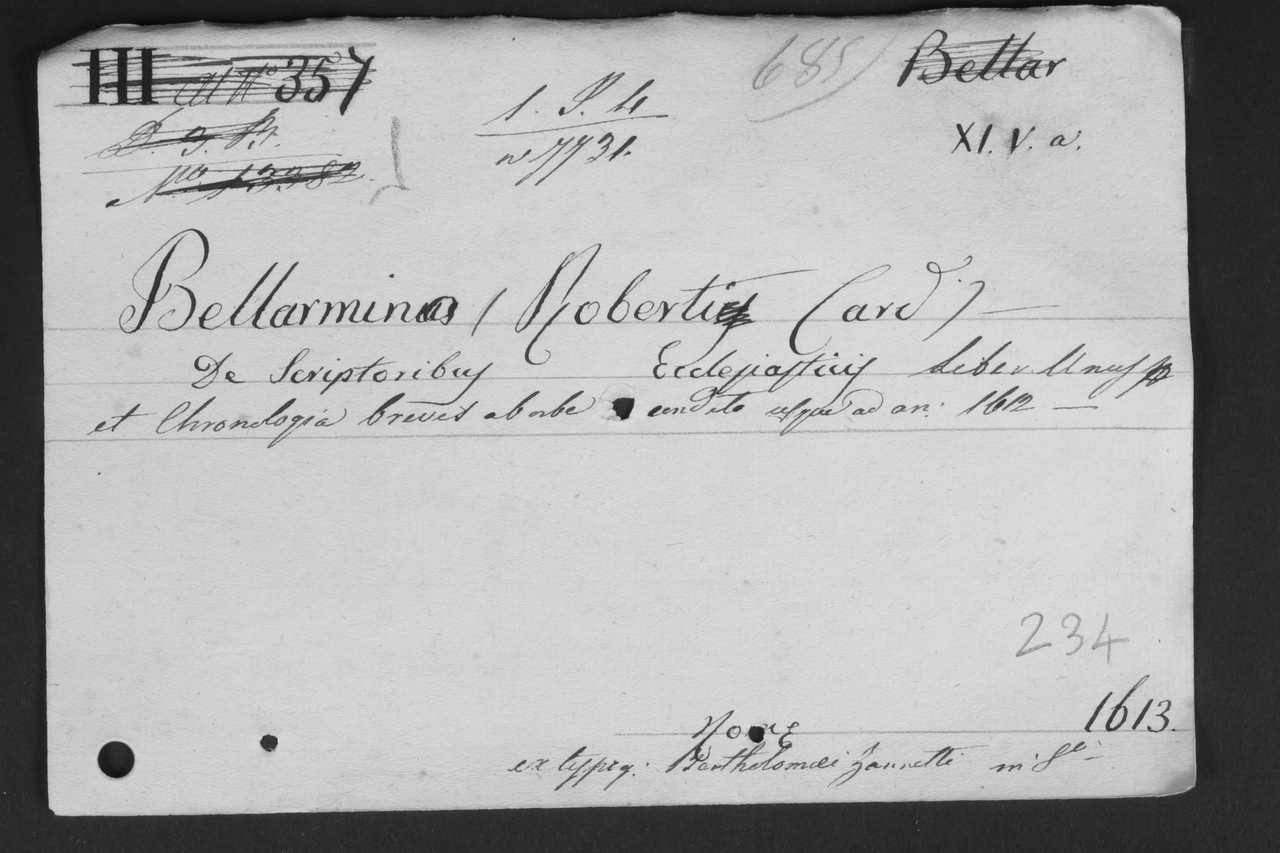 III 357
685
Bellar
1. P. 4
n 7731.
XI. V. a.
D. 9. B.
No. 13382.
Bellarminus (Roberti Card.) —
De Scriptoribus Ecclesiasticis Liber Unus
et Chronologia brevis ab orbe condito usque ad an: 1612 —
234
1613.
Romae
ex typog: Bartholomaei Zannetti in 8º